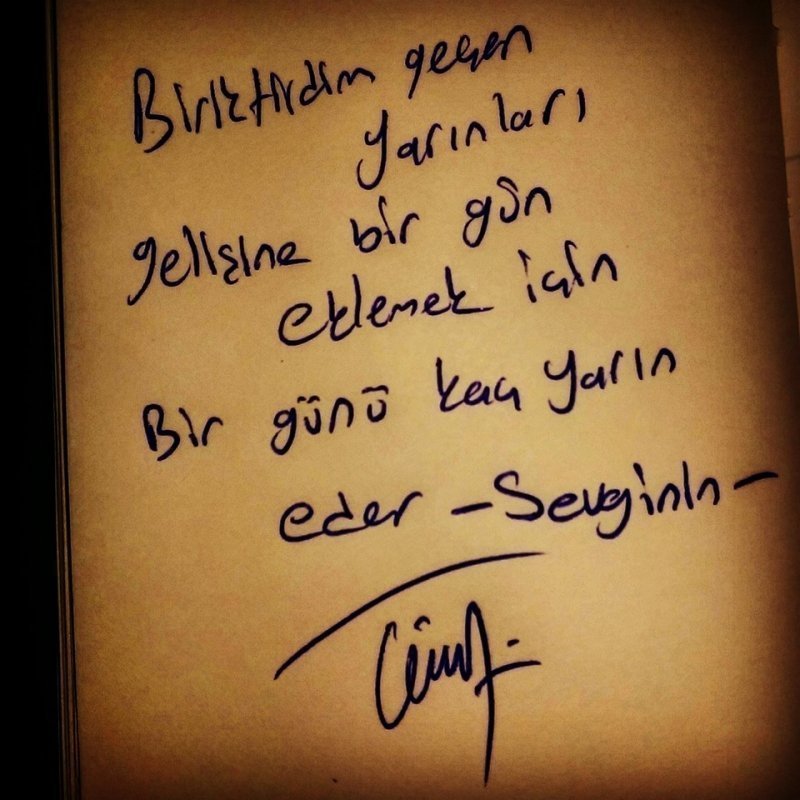 Biriktirdim geçen
yarınları
gelişine bir gün
eklemek için
Bir günü kaç yarın
eder -Sevginin-